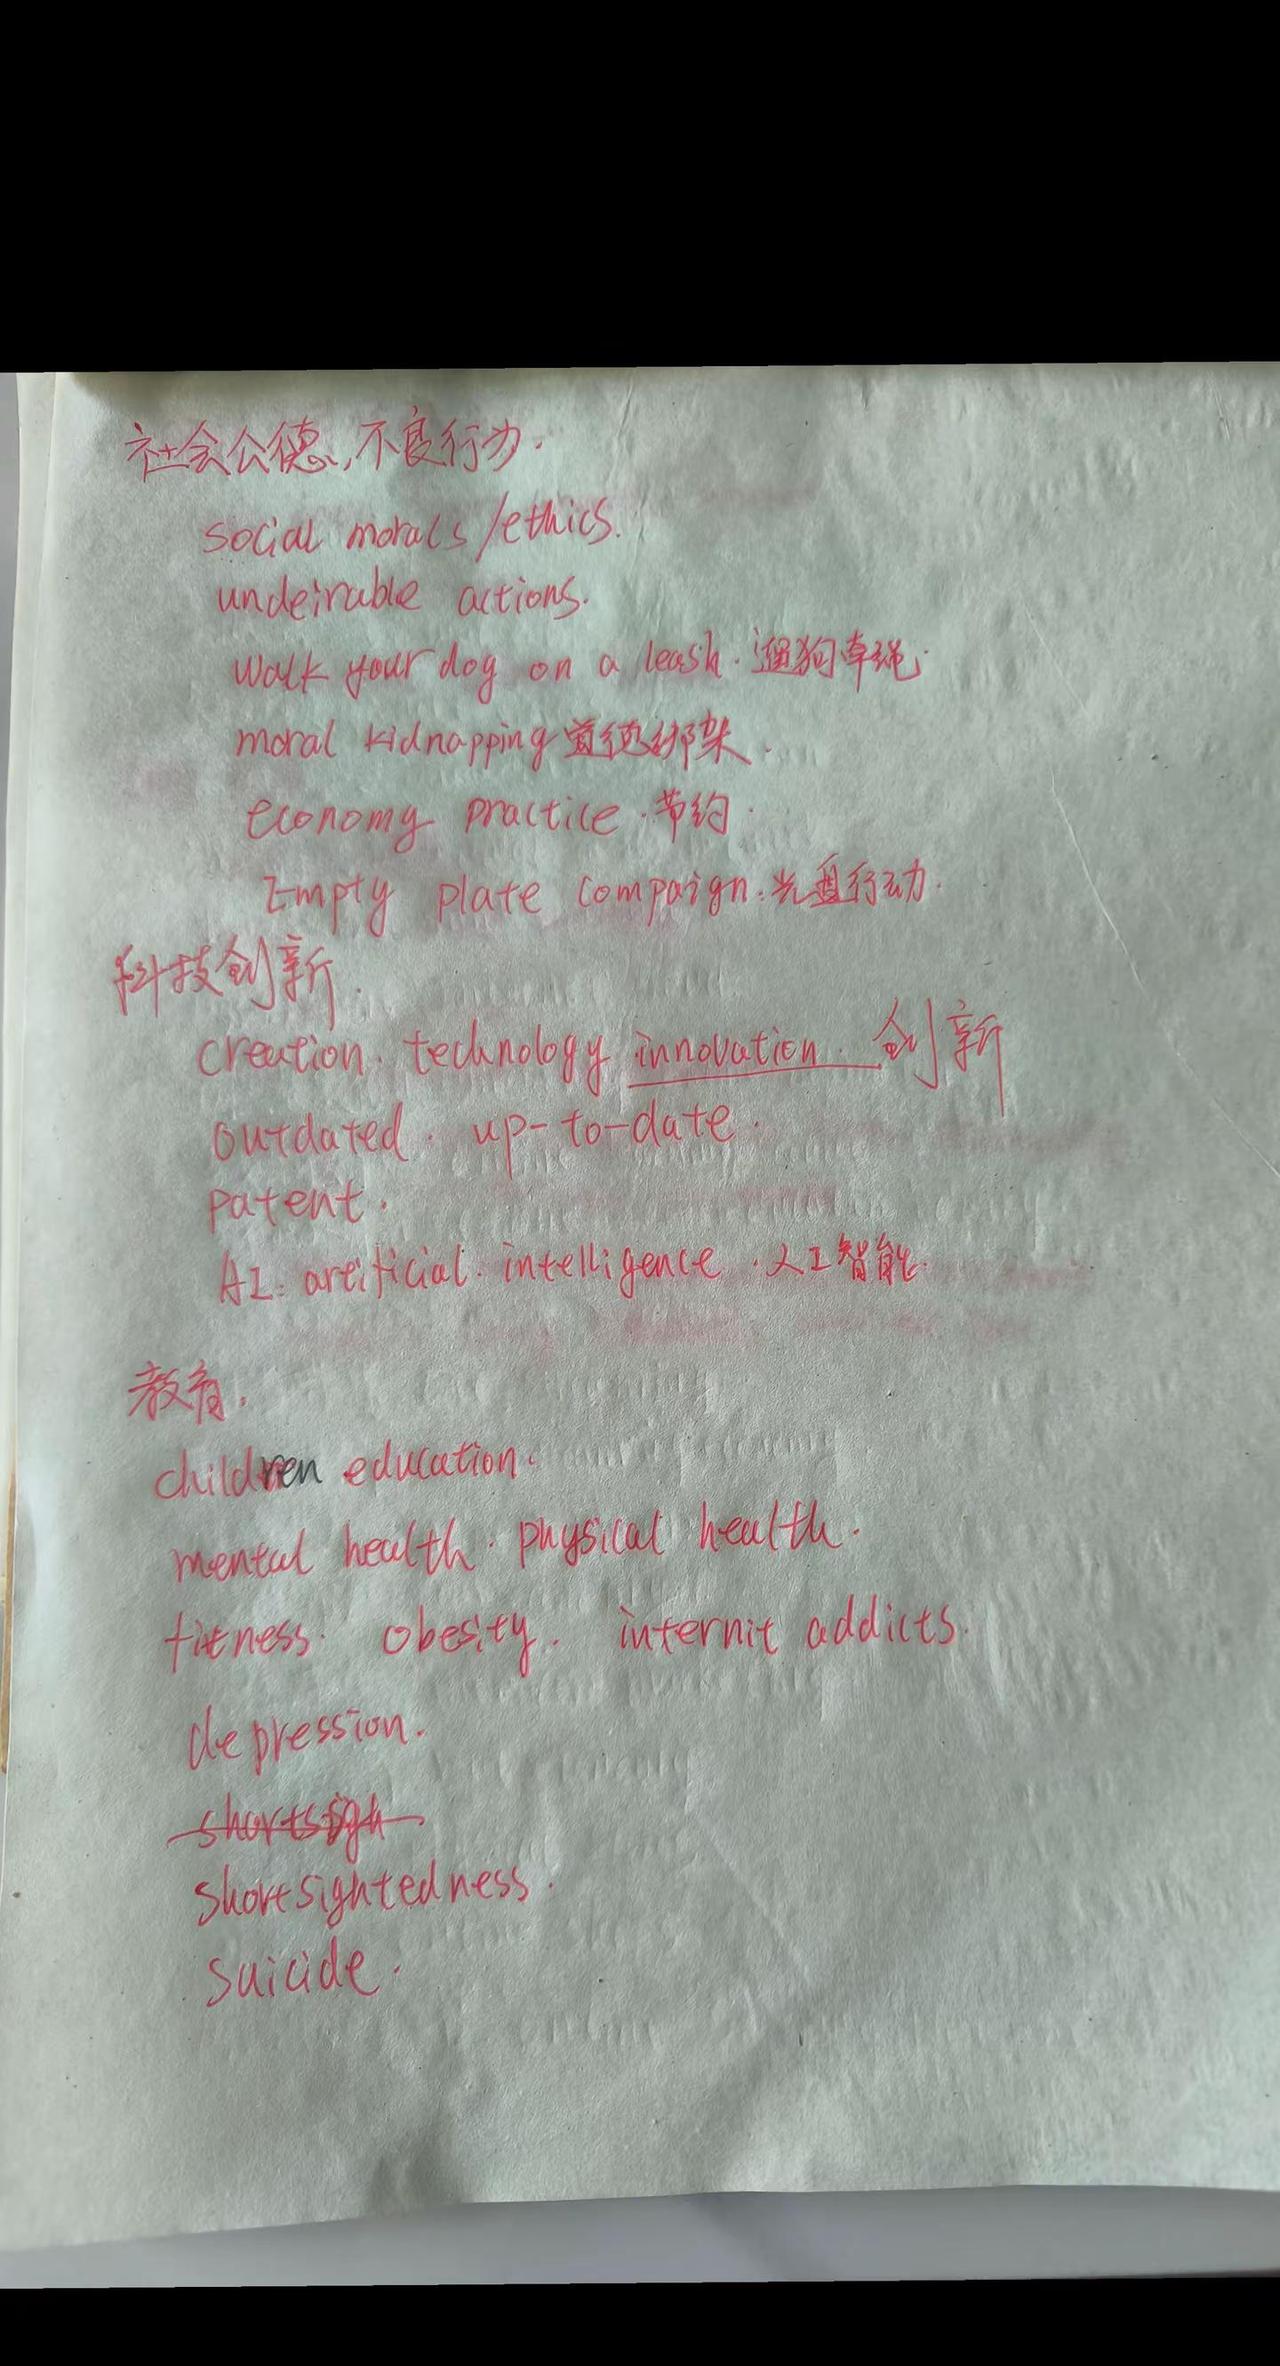 社会公德,不良行为.
social morals/ethics.
undeirable actions.
walk your dog on a leash.遛狗牵绳.
moral kidnapping道德绑架.
economy practice.节约.
Empty plate compaign.光盘行动.
科技创新.
creation. technology innovation. 创新
outdated. up-to-date.
patent.
AI. areificial. intelligence.人工智能.
教育.
children education.
mental health. physical health.
fitness. obesity. internit addicts.
depression.
shortsigh
shortsightedness.
suicide.